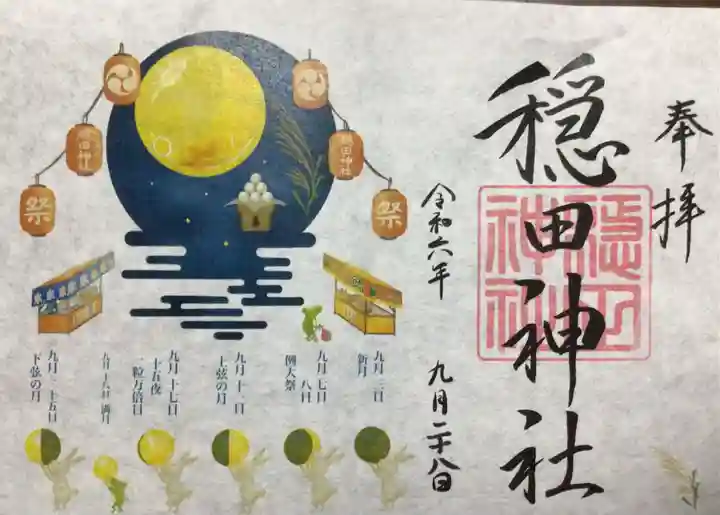 奉拝
穏田神社
令和六年 九月二十八日
穏田神社
祭
穏田神社
祭
九月三日
新月
九月七日
八日
例大祭
九月十一日
上弦の月
九月十七日
十五夜
一粒万倍日
九月十八日 満月
九月二十五日
下弦の月